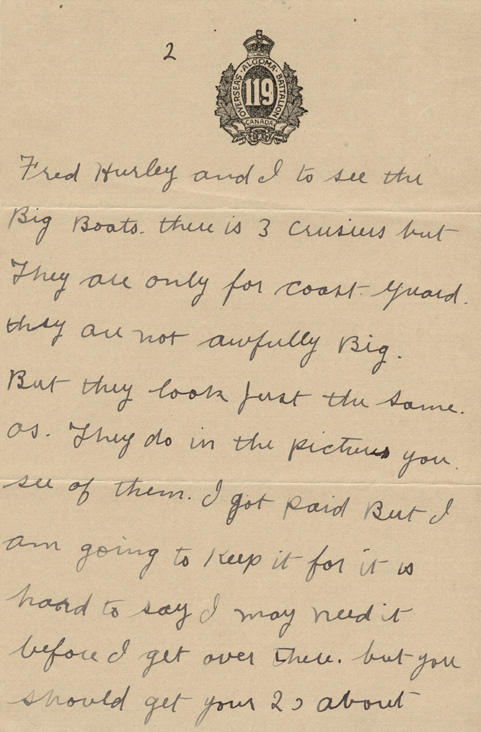 2
OVERSEAS ALGOMA BATTALION
119
CANADA
Fred Hurley and I to see the
Big Boats. there is 3 Crusiers but
They are only for coast guard.
they are not awfully Big.
But they look Just the same.
as. They do in the pictures you.
see of them. I got paid But I
am going to Keep it for it is
hard to say I may need it
before I get over There. but you
should get your 20 about